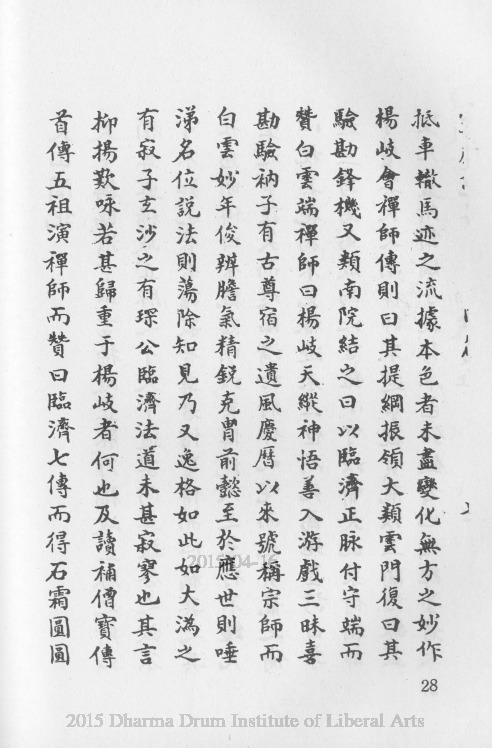 抵車轍馬迹之流據本色者未盡變化無方之妙作
楊岐會禪師傳則曰其提綱振領大類雲門復曰其
驗勘鋒機又類南院結之曰以臨濟正脉付守端而
贊白雲端禪師曰楊岐天縱神悟善入游戲三昧喜
勘驗衲子有古尊宿之遺風慶曆以來號稱宗師而
白雲妙年俊辨膽氣精銳克胄前懿至於應世則唾
涕名位說法則蕩除知見乃又逸格如此如大溈之
有寂子玄沙之有琛公臨濟法道未甚寂寥也其言
抑揚歎咏若甚歸重于楊岐者何也及讀補僧寶傳
首傳五祖演禪師而贊曰臨濟七傳而得石霜圓圓
28
2015-04-16
2015 Dharma Drum Institute of Liberal Arts